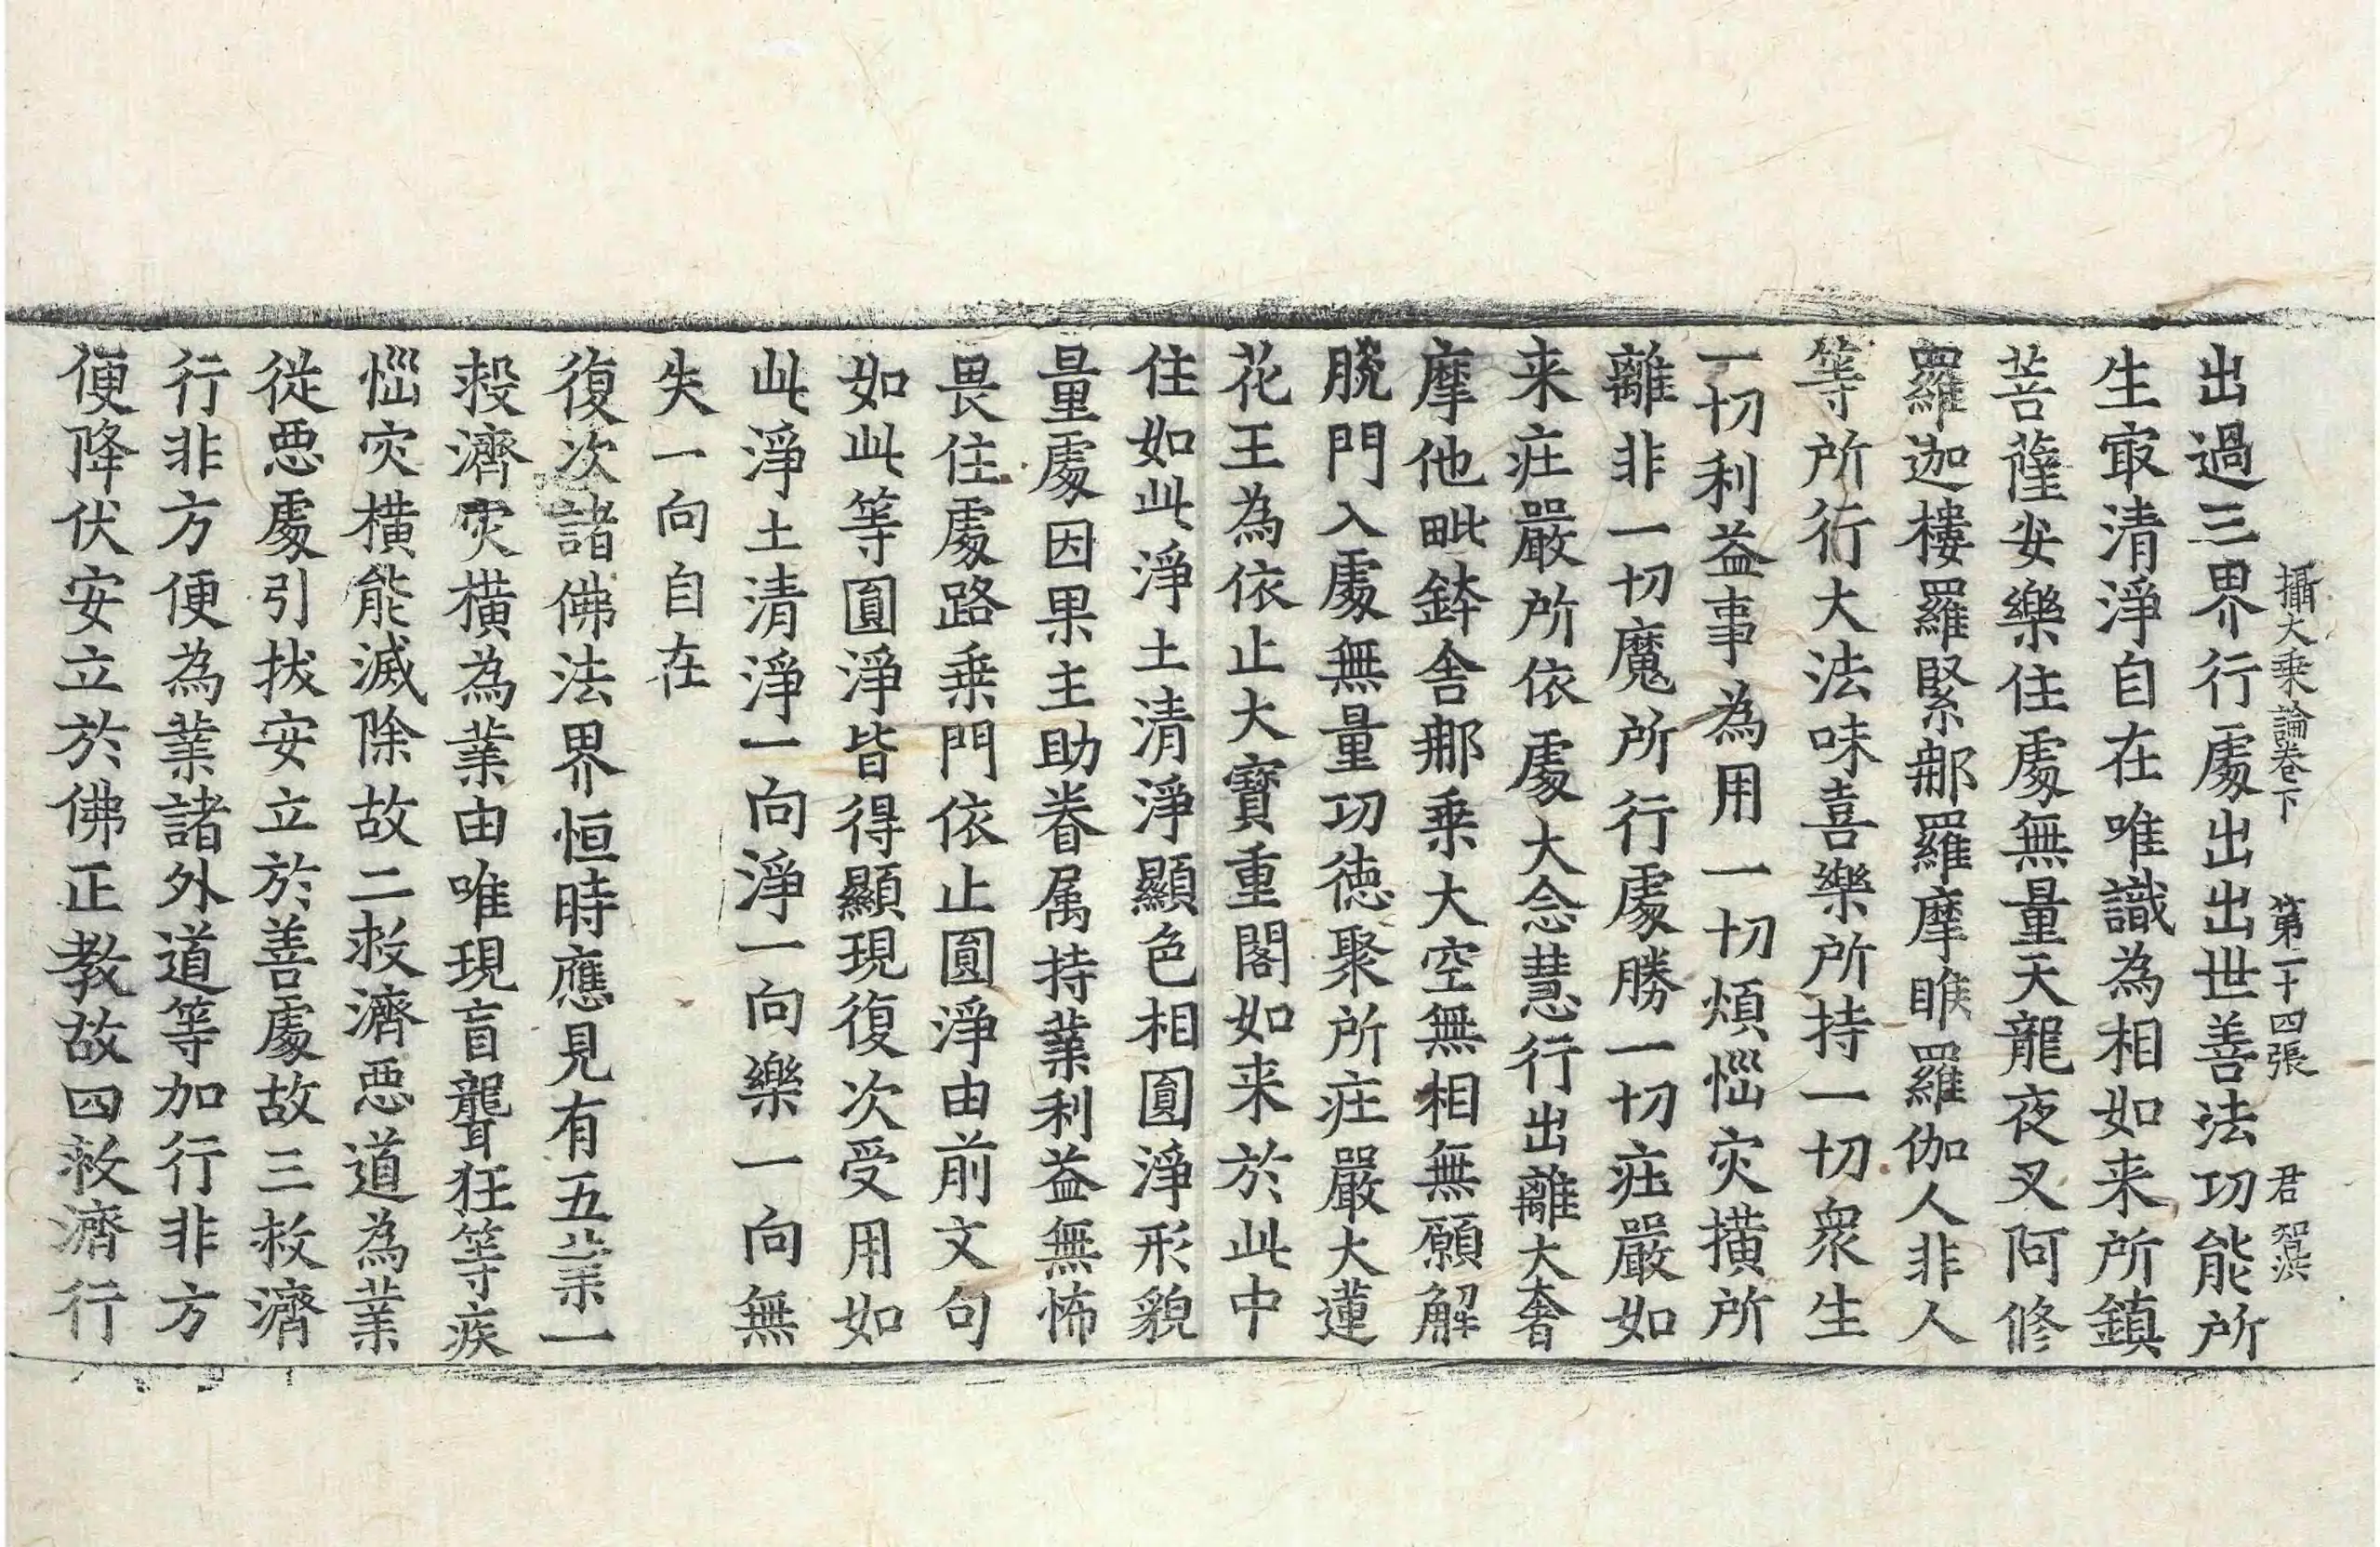 攝大乗論卷下 第二十四張 君
出過三界行處出出世善法功能所
生冣清淨自在唯識為相如来所鎮
菩薩安樂住處無量天龍夜叉阿修
羅迦樓羅緊那羅摩睺羅伽人非人
等所行大法味喜樂所持一切衆生
一切利益事為用一切煩惱灾撗所
離非一切魔所行處勝一切莊嚴如
来莊嚴所依處大念慧行出離大奢
摩他毗鉢舍那乗大空無相無願解
脫門入處無量功徳聚所莊嚴大蓮
花王為依止大寶重閣如来於此中
住如此淨土清淨顯色相圓淨形貌
量處因果主助眷属持業利益無怖
畏住處路乗門依止圓淨由前文句
如此等圓淨皆得顯現復次受用如
此淨土清淨一向淨一向樂一向無
失一向自在
復次諸佛法界恒時應見有五業一
救濟灾横為業由唯現盲聾狂等疾
惱灾横能滅除故二救濟惡道為業
從惡處引拔安立於善處故三救濟
行非方便為業諸外道等加行非方
便降伏安立於佛正教故四救濟行